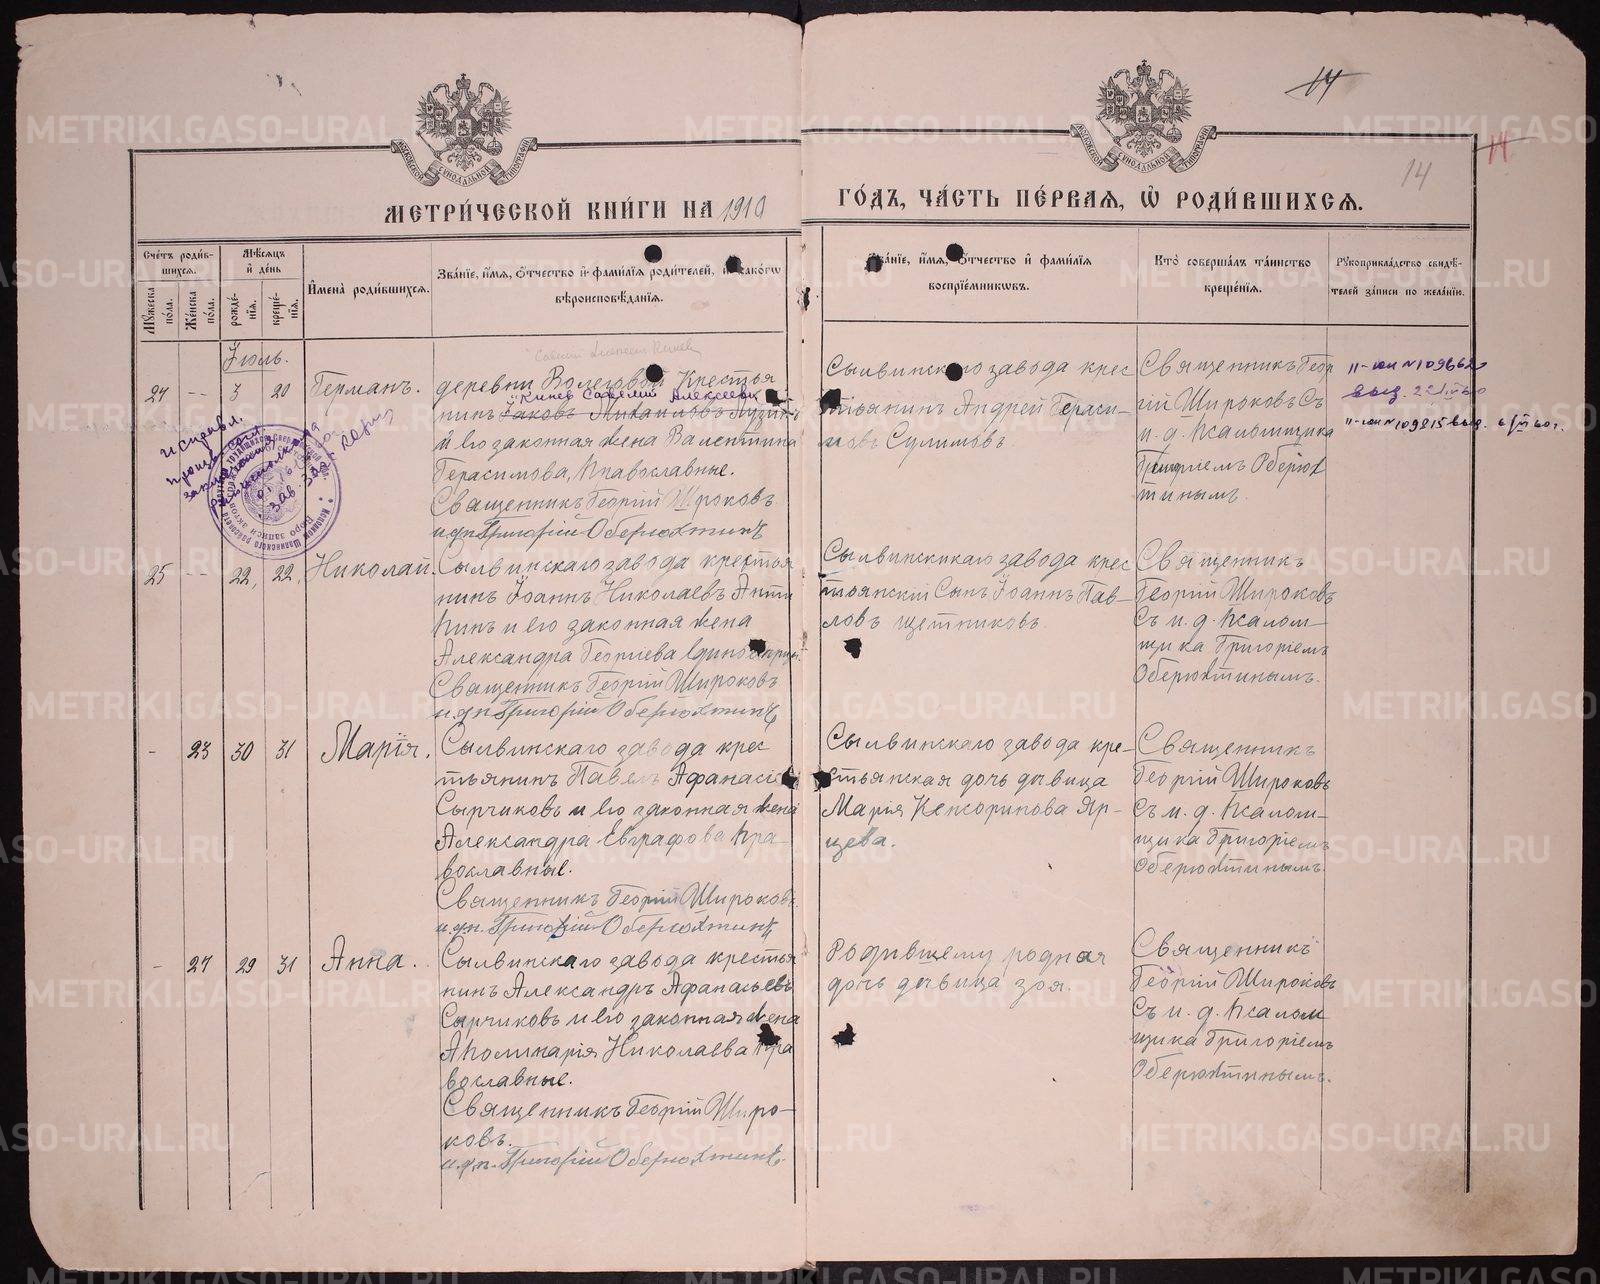 14
14
14
МОСКОВСКОЙ СѴНОДАЛЬНОЙ ТИПОГРАФІИ
МОСКОВСКОЙ СѴНОДАЛЬНОЙ ТИПОГРАФІИ
МЕТРИ́ЧЕСКОЙ КНИ́ГИ НА 1910 ГО́ДЪ, ЧА́СТЬ ПЕ́РВАЯ, Ѡ РОДИ́ВШИХСЯ.
Сче́тъ роди́в-
шихся.
Мѣ́сяцъ
и҆ де́нь
Мꙋ́жеска
по́ла.
Же́нска
по́ла.
рожде́-
нїѧ.
креще́-
нїѧ.
И҆мена̀ роди́вшихся.
Зва́нїе, и҆́мя, ѻ҆́тчество и҆ фами́лїя роди́телей, и҆ како́гѡ
вѣроисповѣ́данїя.
Зва́нїе, и҆́мя, ѻ҆́тчество и҆ фами́лїя
воспрїе́мникѡвъ.
Кто̀ соверша́лъ та́инство
креще́нїя.
Рꙋкоприкла́дство свидѣ́-
телей за́писи по жела́нїю.
Іюль.
24 -- 3 20 Германъ.
деревни Волеговой Крестья
Кинев Савелий Алексеевич
нинъ Яковъ Михаиловъ Лузинъ
и его законная жена Валентина
Герасимова, Православные.
Священникъ Георгій Широковъ
и.д.п. Григорій Оберюхтинъ
Сылвинскаго завода крес
тьянинъ Андрей Гераси-
мовъ Сулимовъ
Священникъ Геор
гій Широковъ Съ
и. д. Псаломщика
Григоріемъ Оберюх
тинымъ.
25 -- 22, 22, Николай.
Сылвинскаго завода крестья
нинъ Іоаннъ Николаевъ Анти
пинъ и его законная жена
Александра Георгиева
Священникъ Георгій Широковъ
и.д.п. Григорій Оберюхтинъ
Сылвинскикаго завода крес
тьянскій Сынъ Іоаннъ Пав-
ловъ Щетниковъ
Священникъ
Георгій Широковъ
Съ и. д. Псалом-
щика Григоріемъ
Оберюхтинымъ.
- 23 30 31 Марія.
Сылвинскаго завода крес
тьянинъ Павелъ Афанасіевъ
Сырчиковъ и его законная жена
Александра Евграфова Пра-
вославные.
Священникъ Георгій Широковъ
и.д.п. Григорій Оберюхтинъ
Сылвинскаго завода кре-
стьянская дочь дѣвица
Марія Кенсоринова Яр-
цева.
Священникъ
Георгій Широковъ
Съ и. д. Псалом-
щика Григоріемъ
Оберюхтинымъ.
- 24 29 31 Анна.
Сылвинскаго завода крестья
нинъ Александръ Афанасьевъ
Сырчиковъ и его законная жена
Аполинарія Николаева Пра
вославные.
Священникъ Георгій Широ-
ковъ.
и.д.п. Григорій Оберюхтинъ.
Родившему родная
дочь дѣвица Зоя.
Священникъ
Георгій Широковъ
Съ и. д. Псалом
щика Григоріемъ
Оберюхтинымъ.
METRIKI.GASO-URAL.RU